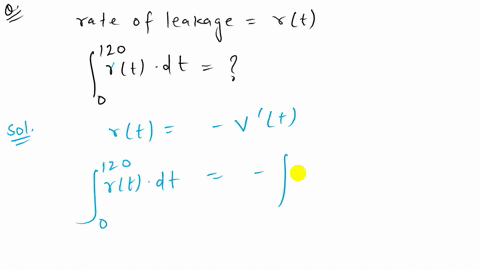 Q. rate of leakage = r(t)
∫₀¹²⁰ r(t)·dt = ?
Sol. r(t) = - V'(t)
∫₀¹²⁰ r(t)·dt = - ∫